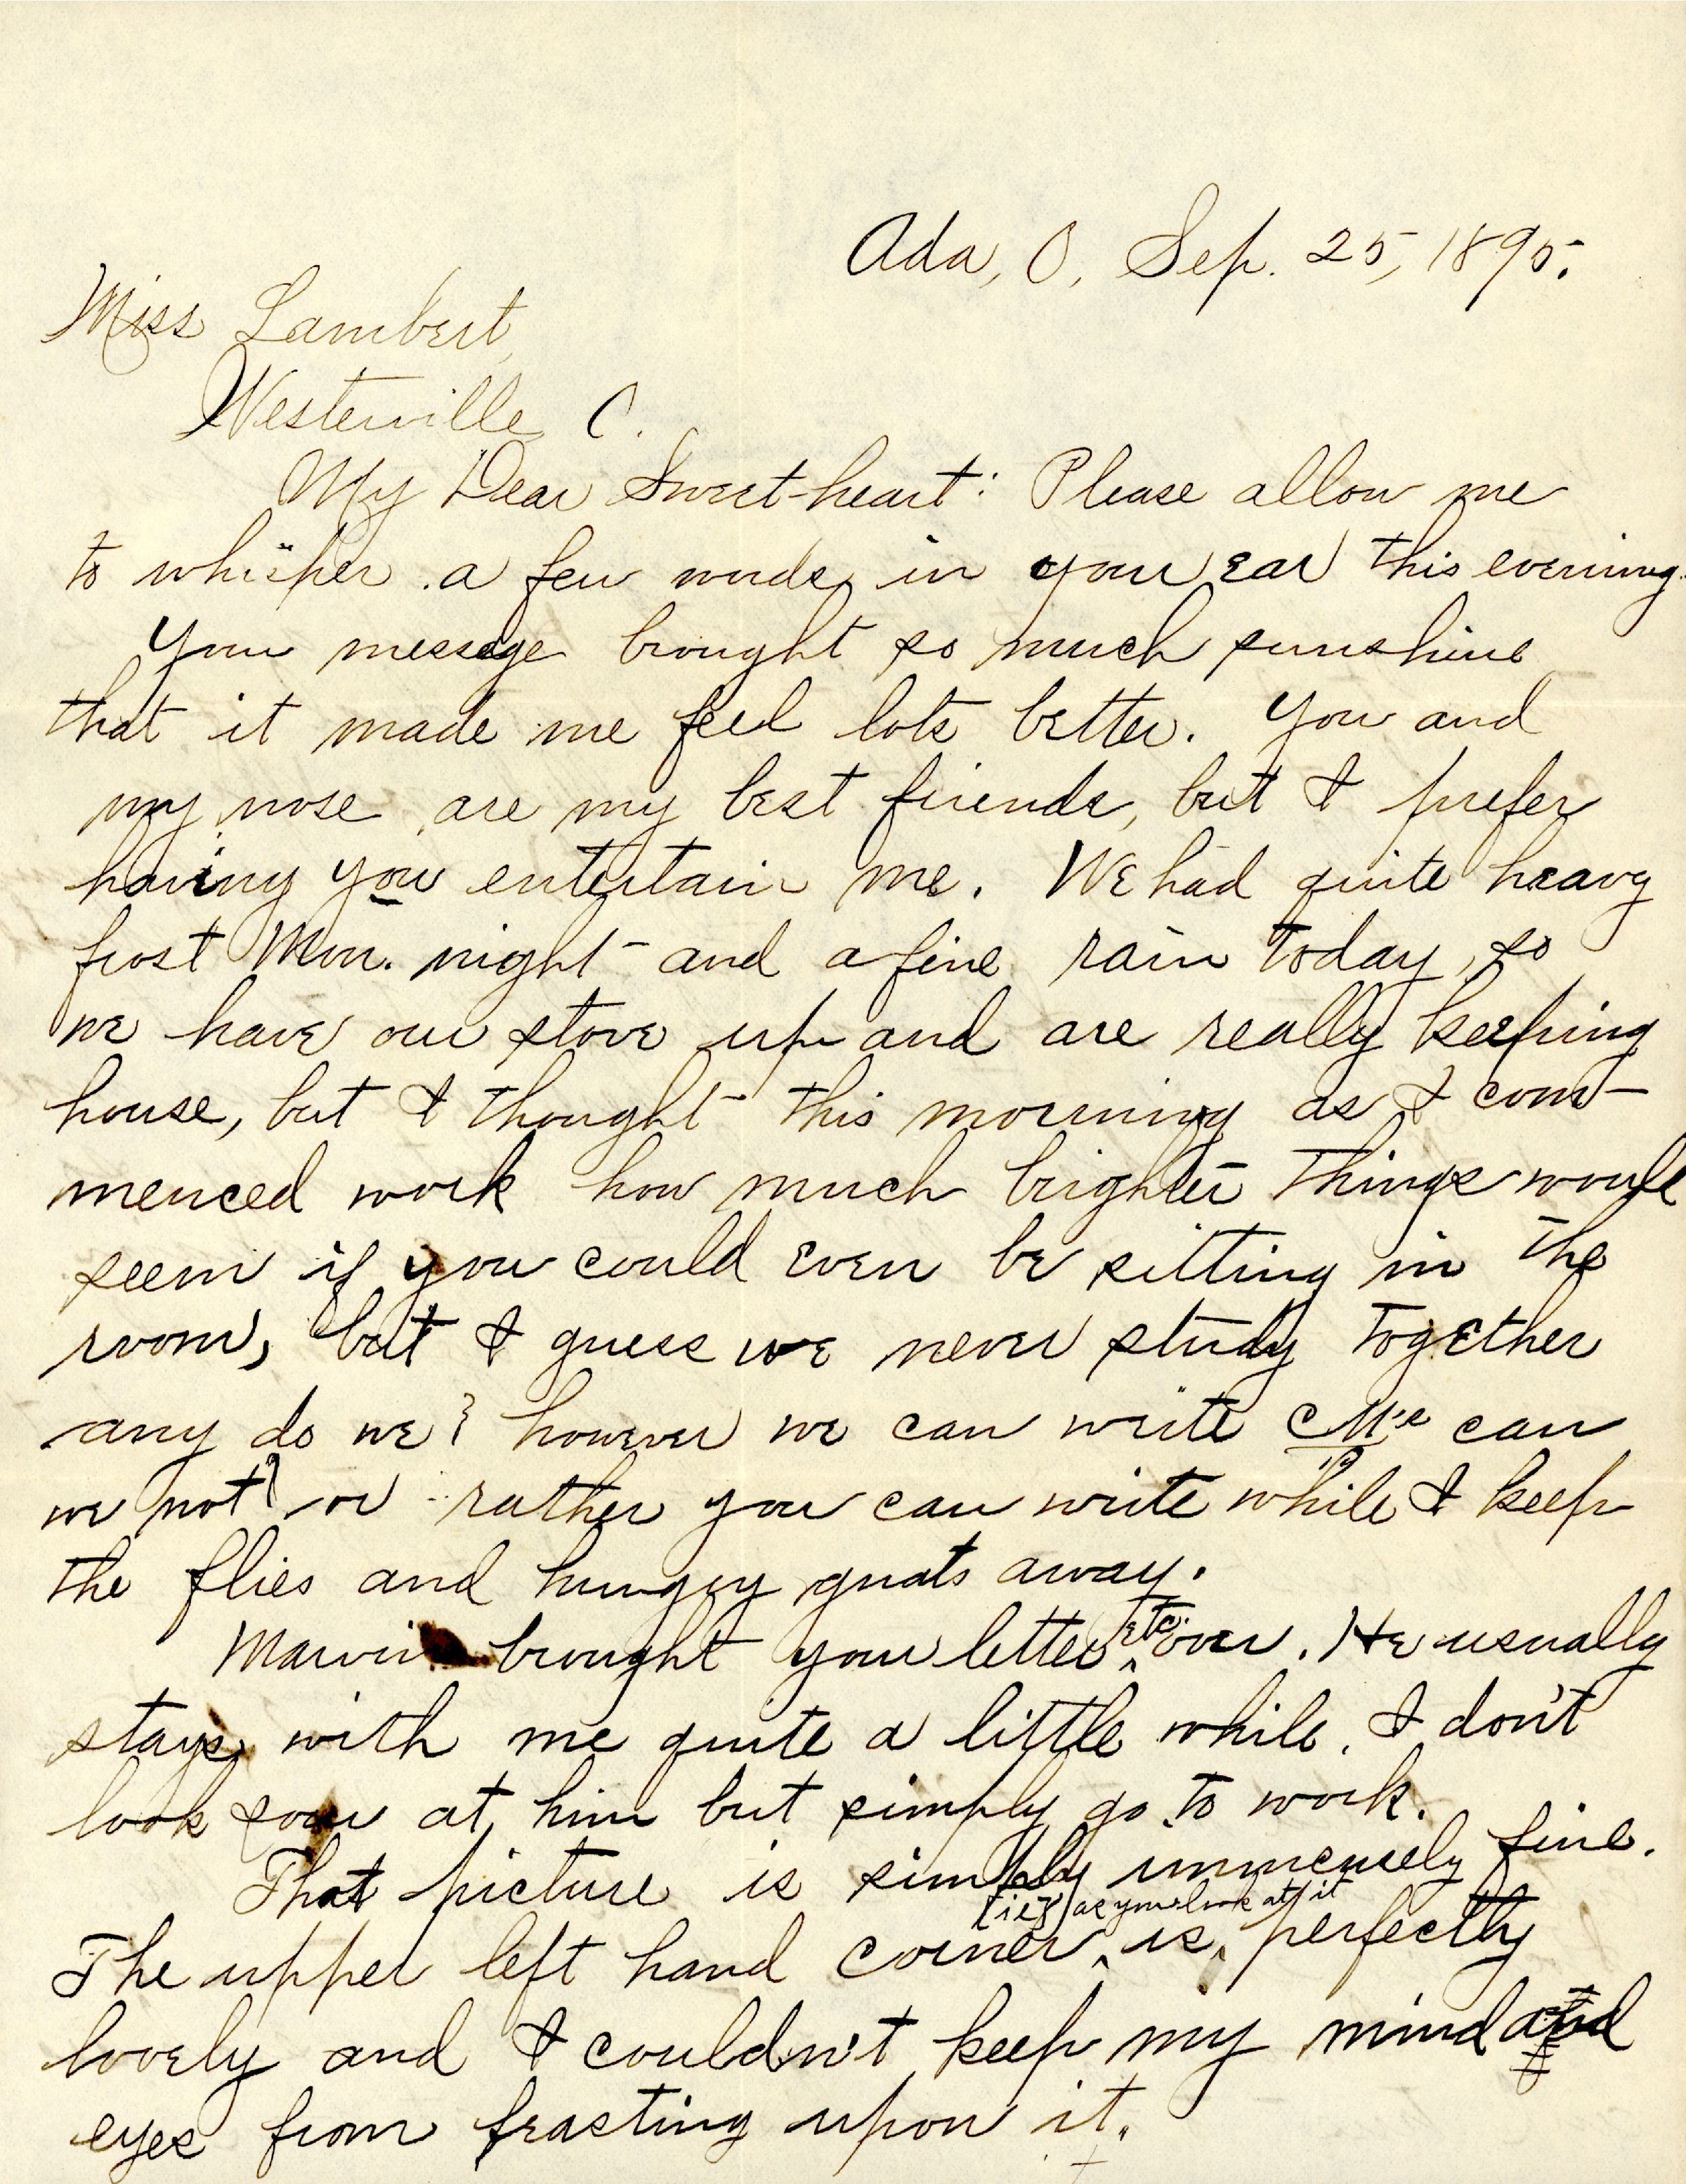 Ada, O, Sep. 25, 1895.
Miss Lambert,
Westerville, O.
My Dear Sweet-heart: Please allow me
to whisper a few words in your ear this evening.
Your message brought so much sunshine
that it made me feel lots better. You and
my nose are my best friends, but I prefer
having you entertain me. We had quite heavy
frost Mon. night and a fine rain today, so
we have our stove up and are really keeping
house, but I thought this morning as I com-
menced work how much brighter things would
seem if you could even be sitting in the
room, but I guess we never study together
any do we? however we can write can
we not? or rather you can write while I keep
the flies and hungry gnats away.
Marvin brought your letter etc. over. He usually
stays with me quite a little while. I don't
look sour at him but simply go to work.
That picture is simply immensely fine.
The upper left hand corner (i.e.) as you look at it is perfectly
lovely and I couldn't keep my mind and
eyes from feasting upon it.